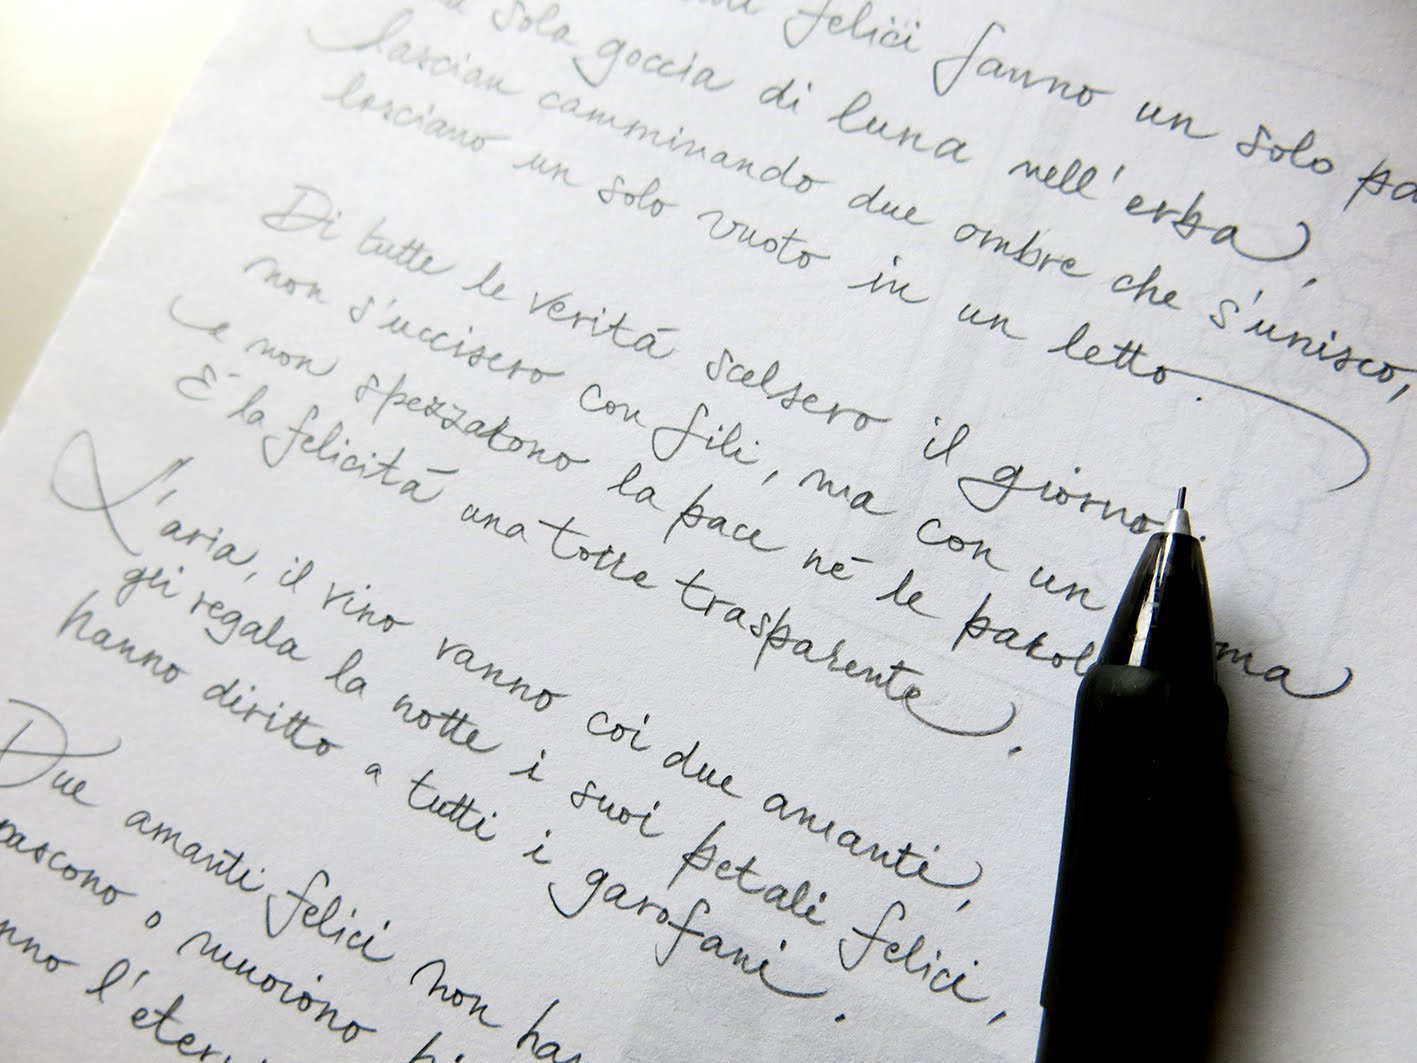 felici fanno un solo pa
sola goccia di luna nell'erba,
lascian camminando due ombre che s'unisco,
lasciano un solo vuoto in un letto.
Di tutte le veritá scelsero il giorno.
non s'uccisero con fili, ma con un
e non spezzarono la pace né le parol ma
É la felicitá una torre trasparente.
L'aria, il vino vanno coi due amanti,
gli regala la notte i suoi petali felici,
hanno diritto a tutti i garofani.
Due amanti felici non han
nascono o muoiono
nno l'eter